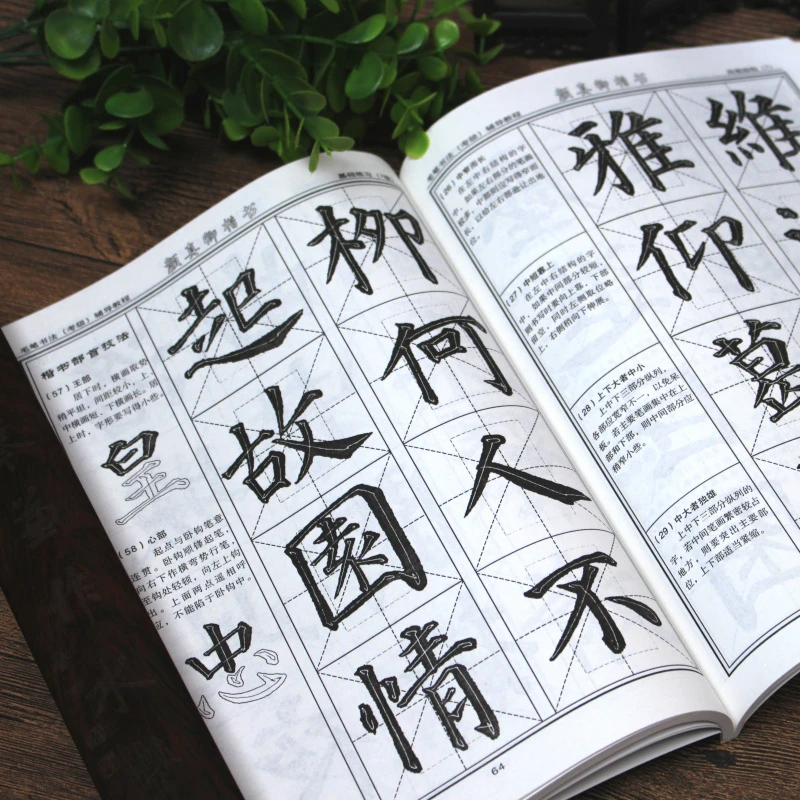 颜真卿楷书
毛笔书法（考级）辅导教程
楷书部首技法
(57) 王部
居下时，横画取势
稍平组，间距较小，上
中横画短，下横画长。居
上时，字形要写得小些。
皇
(58) 心部
起点与卧钩笔意
连贯。卧钩顺锋起笔，
向右下作横弯势行笔，
至钩处轻顿，向左上钩
出。上面两点遥相呼
应，不能陷于卧钩中。
忠
柳何人不
起故園情
64
颜真卿楷书
毛笔书法（考级）辅导教程
(26) 中窄而长
在左中右结构的字
中，如果左右部分的笔画
较多，中部则应写得窄而
长，以给左右部避让出地
位。
(27) 中短靠上
在左中右结构的字
中，如果中间部分较短，
则书写时要向上靠，下部
留空，同时左侧取位略
上，右侧稍向下伸展。
(28) 上下大者中小
上中下三部分纵列，
各部位宽窄不一，以免呆
板。若主要笔画集中在上
部和下部，则中间部分应
稍窄小些。
(29) 中大者独雄
上中下三部分纵列的
字，若中间笔画繁密较占
地方，则要突出主要部
位，上下部适当紧缩。
維
雅仰葛